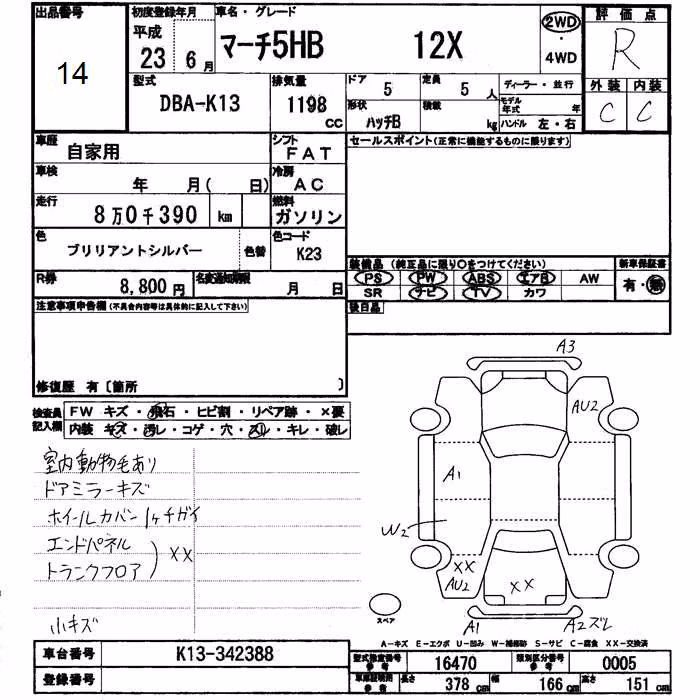 出品番号
14
初度登録年月
平成
23 6 月
車名・グレード
マーチ5HB 12X
2WD
・
4WD
評価点
R
外装 内装
C C
型式
DBA-K13
排気量
1198
CC
ドア
5
定員
5 人
形状
ハッチB
積載
kg
ディーラー・並行
モデル年式 年
ハンドル 左・右
車歴
自家用
シフト
FAT
車検
年 月( 日)
冷房
AC
走行
8万0千390 km
燃料
ガソリン
色
ブリリアントシルバー
色替
色コード
K23
R券
8,800円
名変通知期限
月 日
セールスポイント(正常に機能するものに限ります)
装備品 (純正品に限り○をつけてください)
PS PW ABS エアB AW
SR ナビ TV カワ
新車保証書
有・無
後日品
注意事項申告欄(不具合内容等は具体的に記入して下さい)
修復歴 有〔箇所 〕
検査員記入欄
FW キズ・飛石・ヒビ割・リペア跡・×要
内装 キズ・汚レ・コゲ・穴・スレ・キレ・破レ
室内動物毛あり
ドアミラーキズ
ホイールカバー1ヶチガイ
エンドパネル
トランクフロア
) XX
小キズ
A3
AU2
A1
W2
XX
AU2
XX
A1
A2ズレ
スペア
A-キズ E-エクボ U-凹み W-補修跡 S-サビ C-腐食 XX-交換済
車台番号
K13-342388
登録番号
型式指定番号
参考
16470
類別区分番号
参考
0005
車庫証明用
参考
長さ
378 cm
幅
166 cm
高さ
151 cm